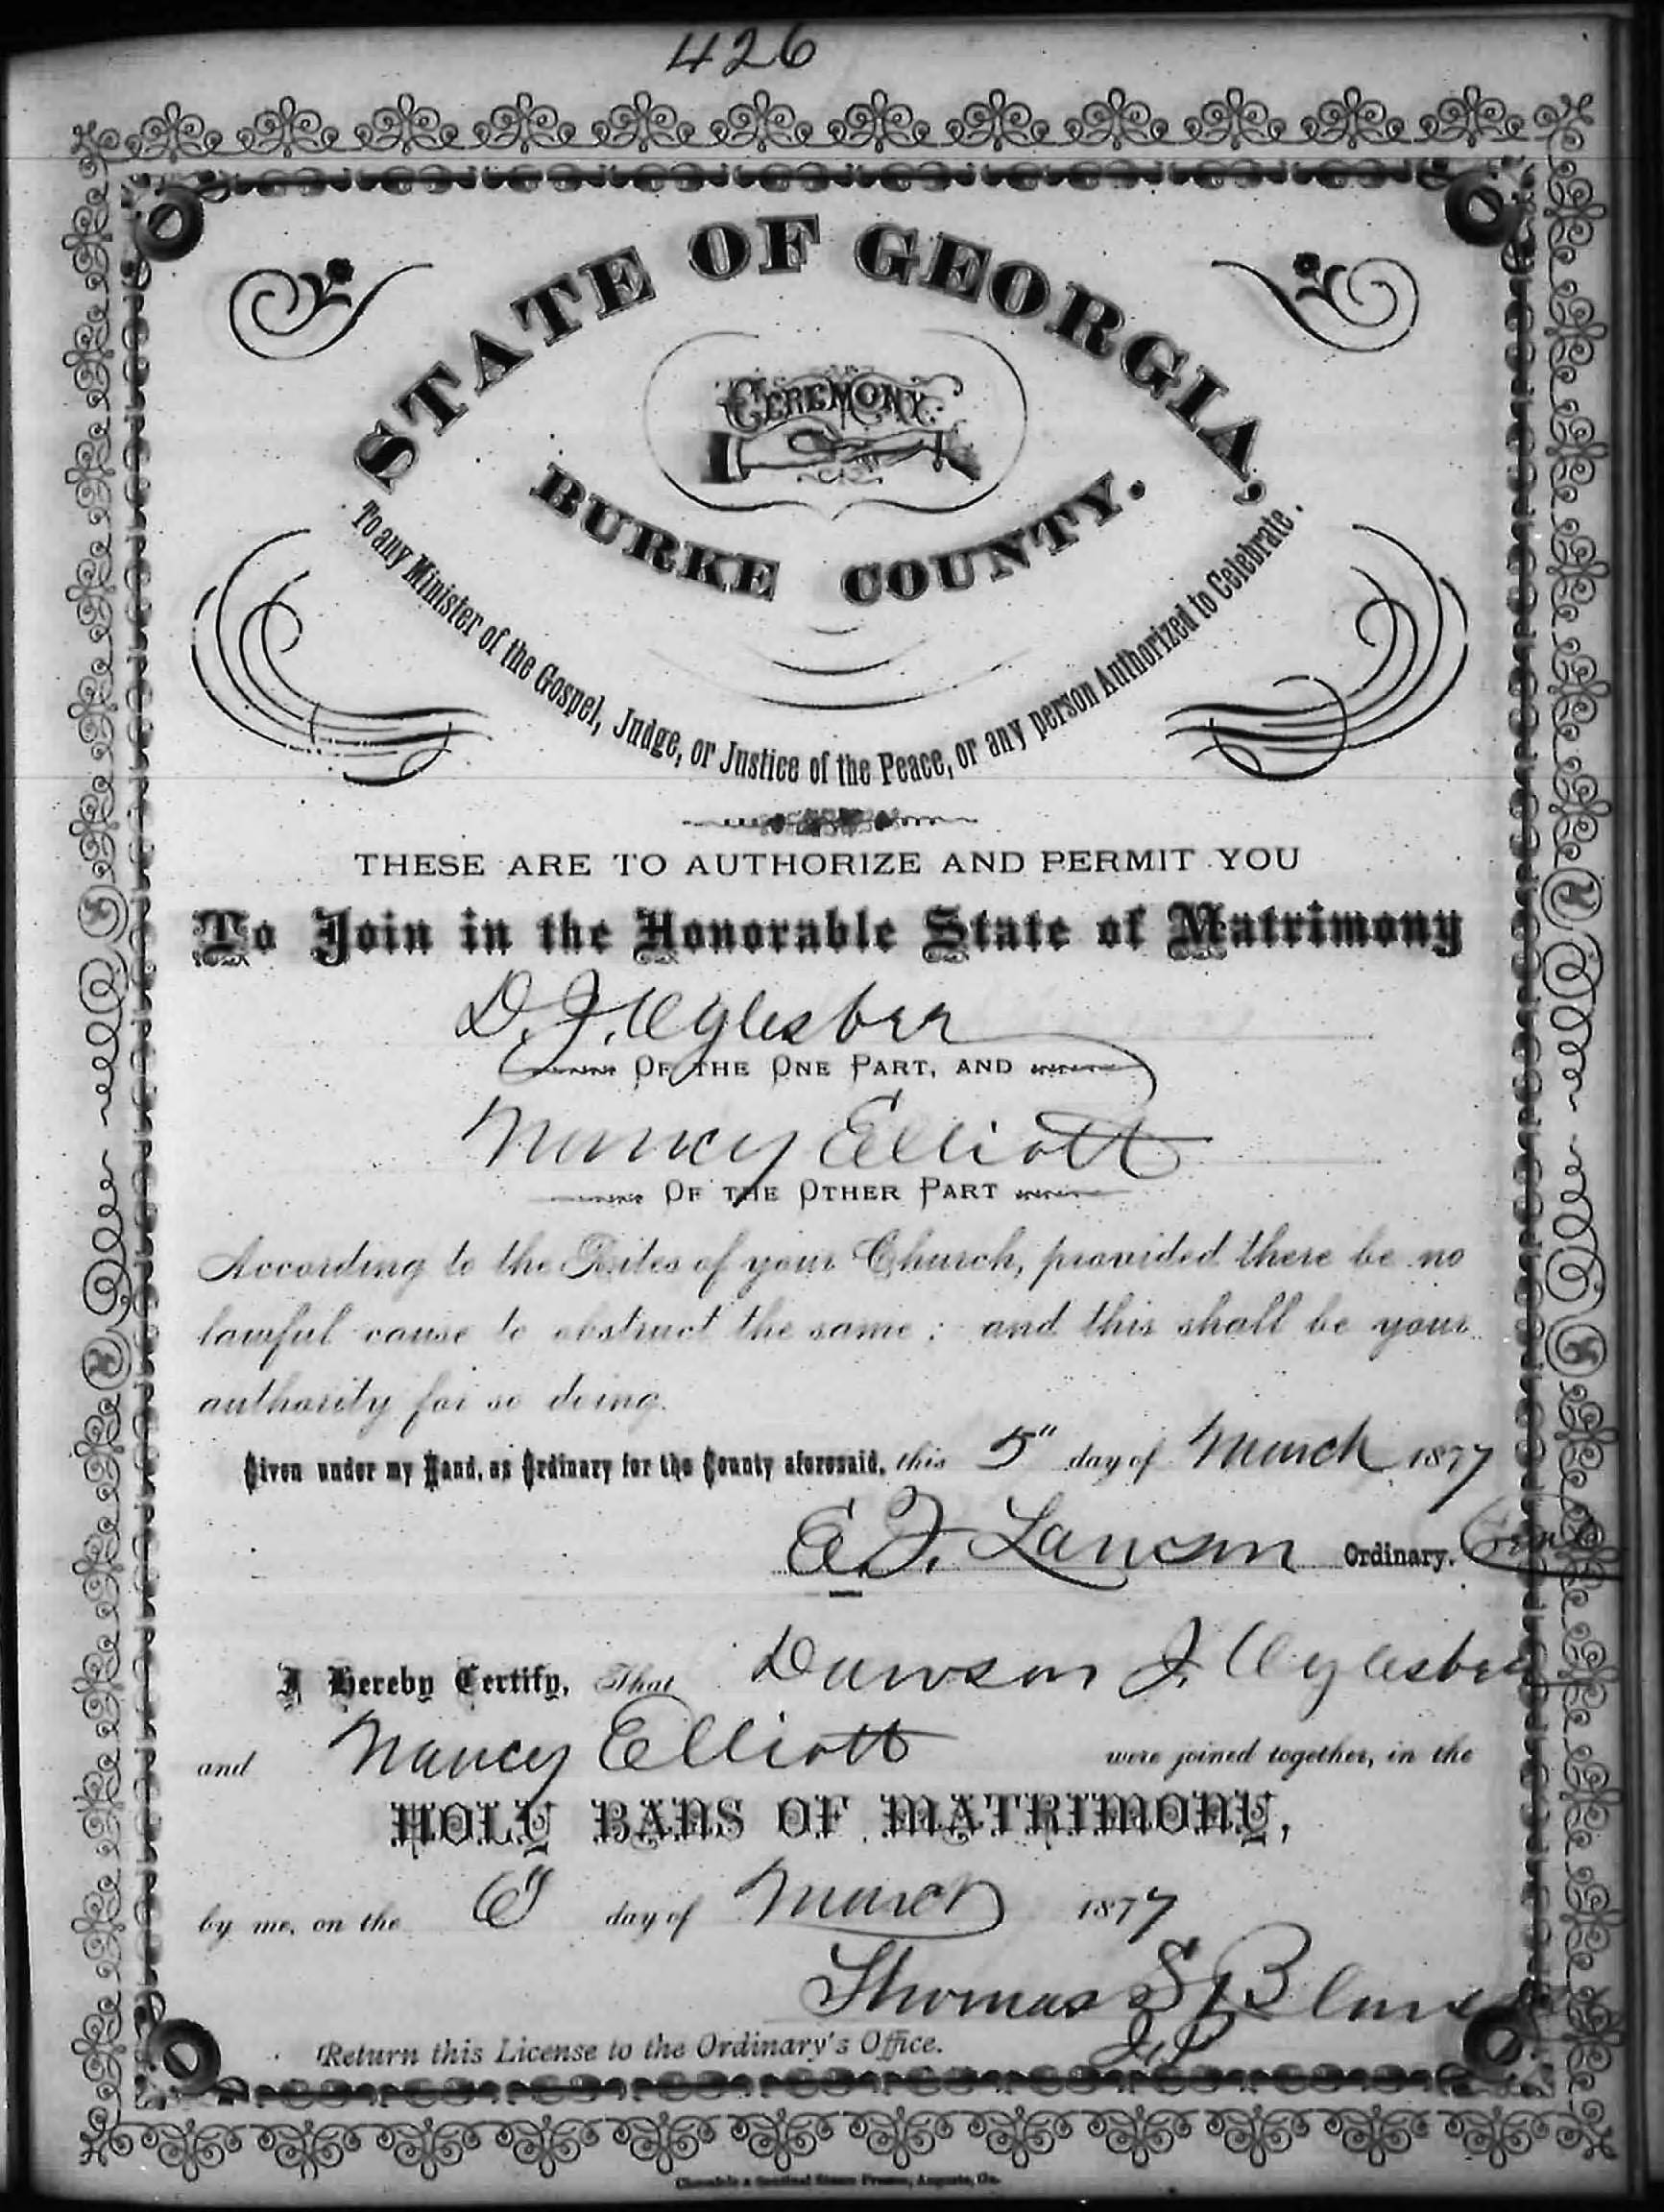 426
STATE OF GEORGIA,
CEREMONY.
BURKE COUNTY.
To any Minister of the Gospel, Judge, or Justice of the Peace, or any person Authorized to Celebrate.
THESE ARE TO AUTHORIZE AND PERMIT YOU
To Join in the Honorable State of Matrimony
D. J. Oglesbee
OF THE ONE PART, AND
Nancy Elliott
OF THE OTHER PART
According to the Rites of your Church, provided there be no
lawful cause to obstruct the same; and this shall be your
authority for so doing.
Given under my Hand, as Ordinary for the County aforesaid, this 5" day of March 1877
E. F. Lawson Ordinary.
I Hereby Certify, That Dawson J. Oglesbee
and Nancy Elliott were joined together, in the
HOLY BANS OF MATRIMONY,
by me, on the 6 day of March 1877
Thomas S B
J.P
Return this License to the Ordinary's Office.
Chronicle & Sentinel Steam Presses, Augusta, Ga.